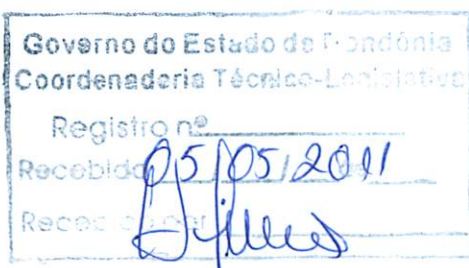 Governo do Estado de Rondônia
Coordenadoria Técnico-Legislativa
Registro nº
Recebido 05/05/2011